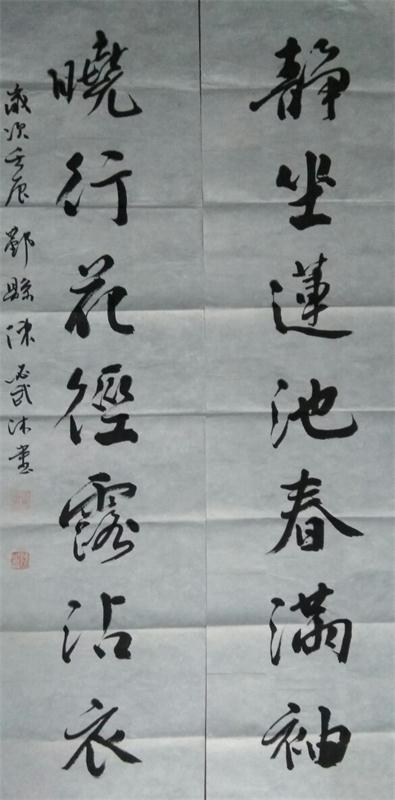 靜坐蓮池春滿袖
曉行花徑露沾衣
歲次壬辰鄞縣陳
沐書